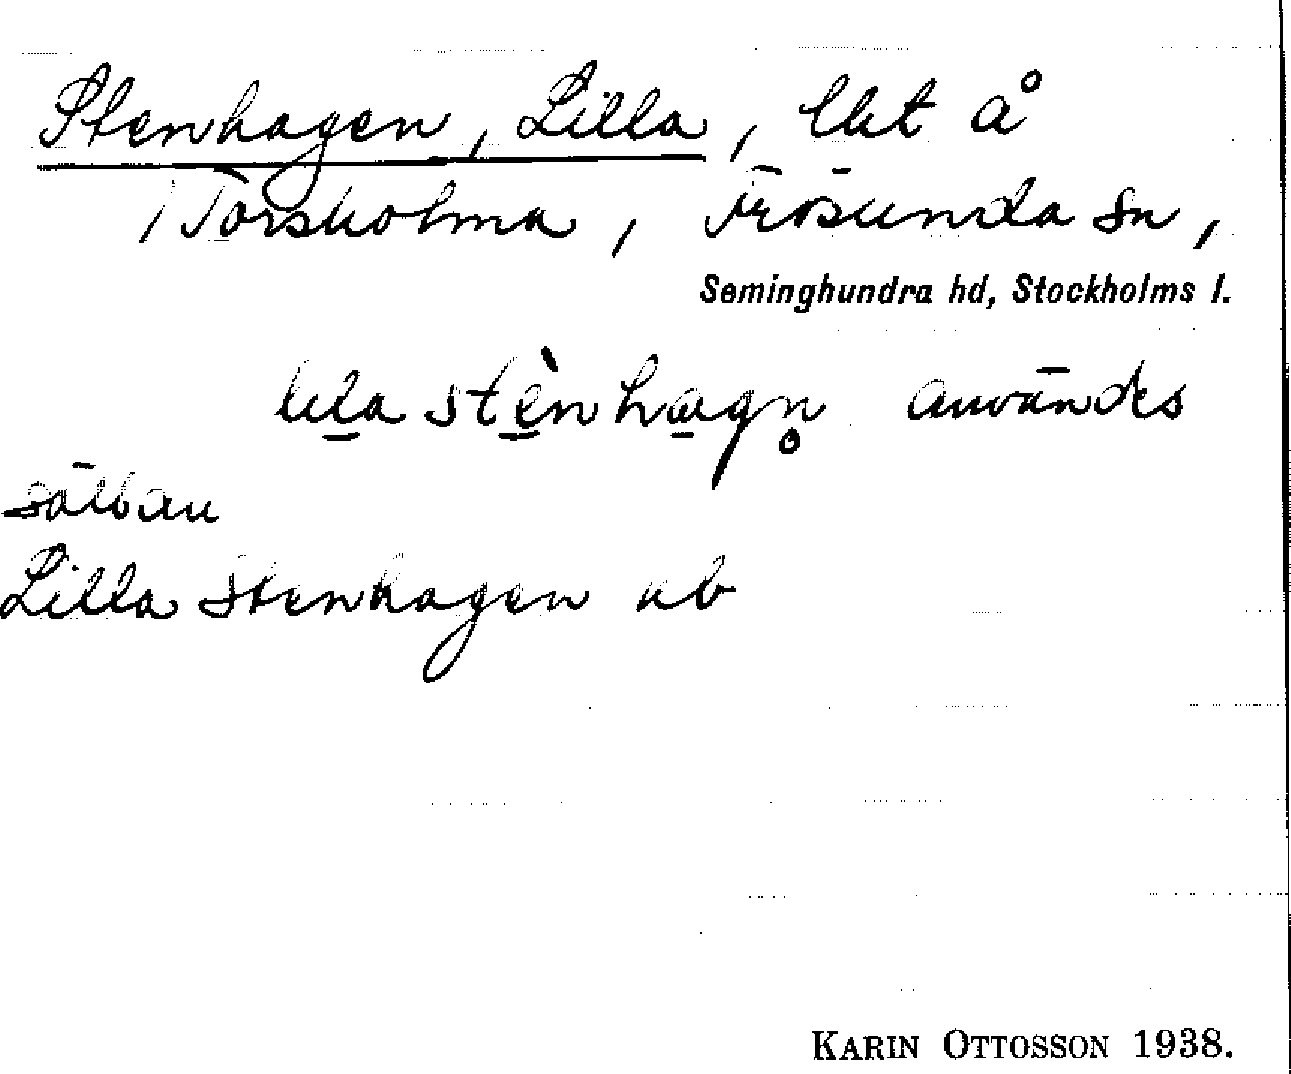 Stenhagen, Lilla, lht å
Torsholma, Frösunda sn,
Seminghundra hd, Stockholms l.
lila stènhagn̥ användes
sällan
Lilla Stenhagen ab